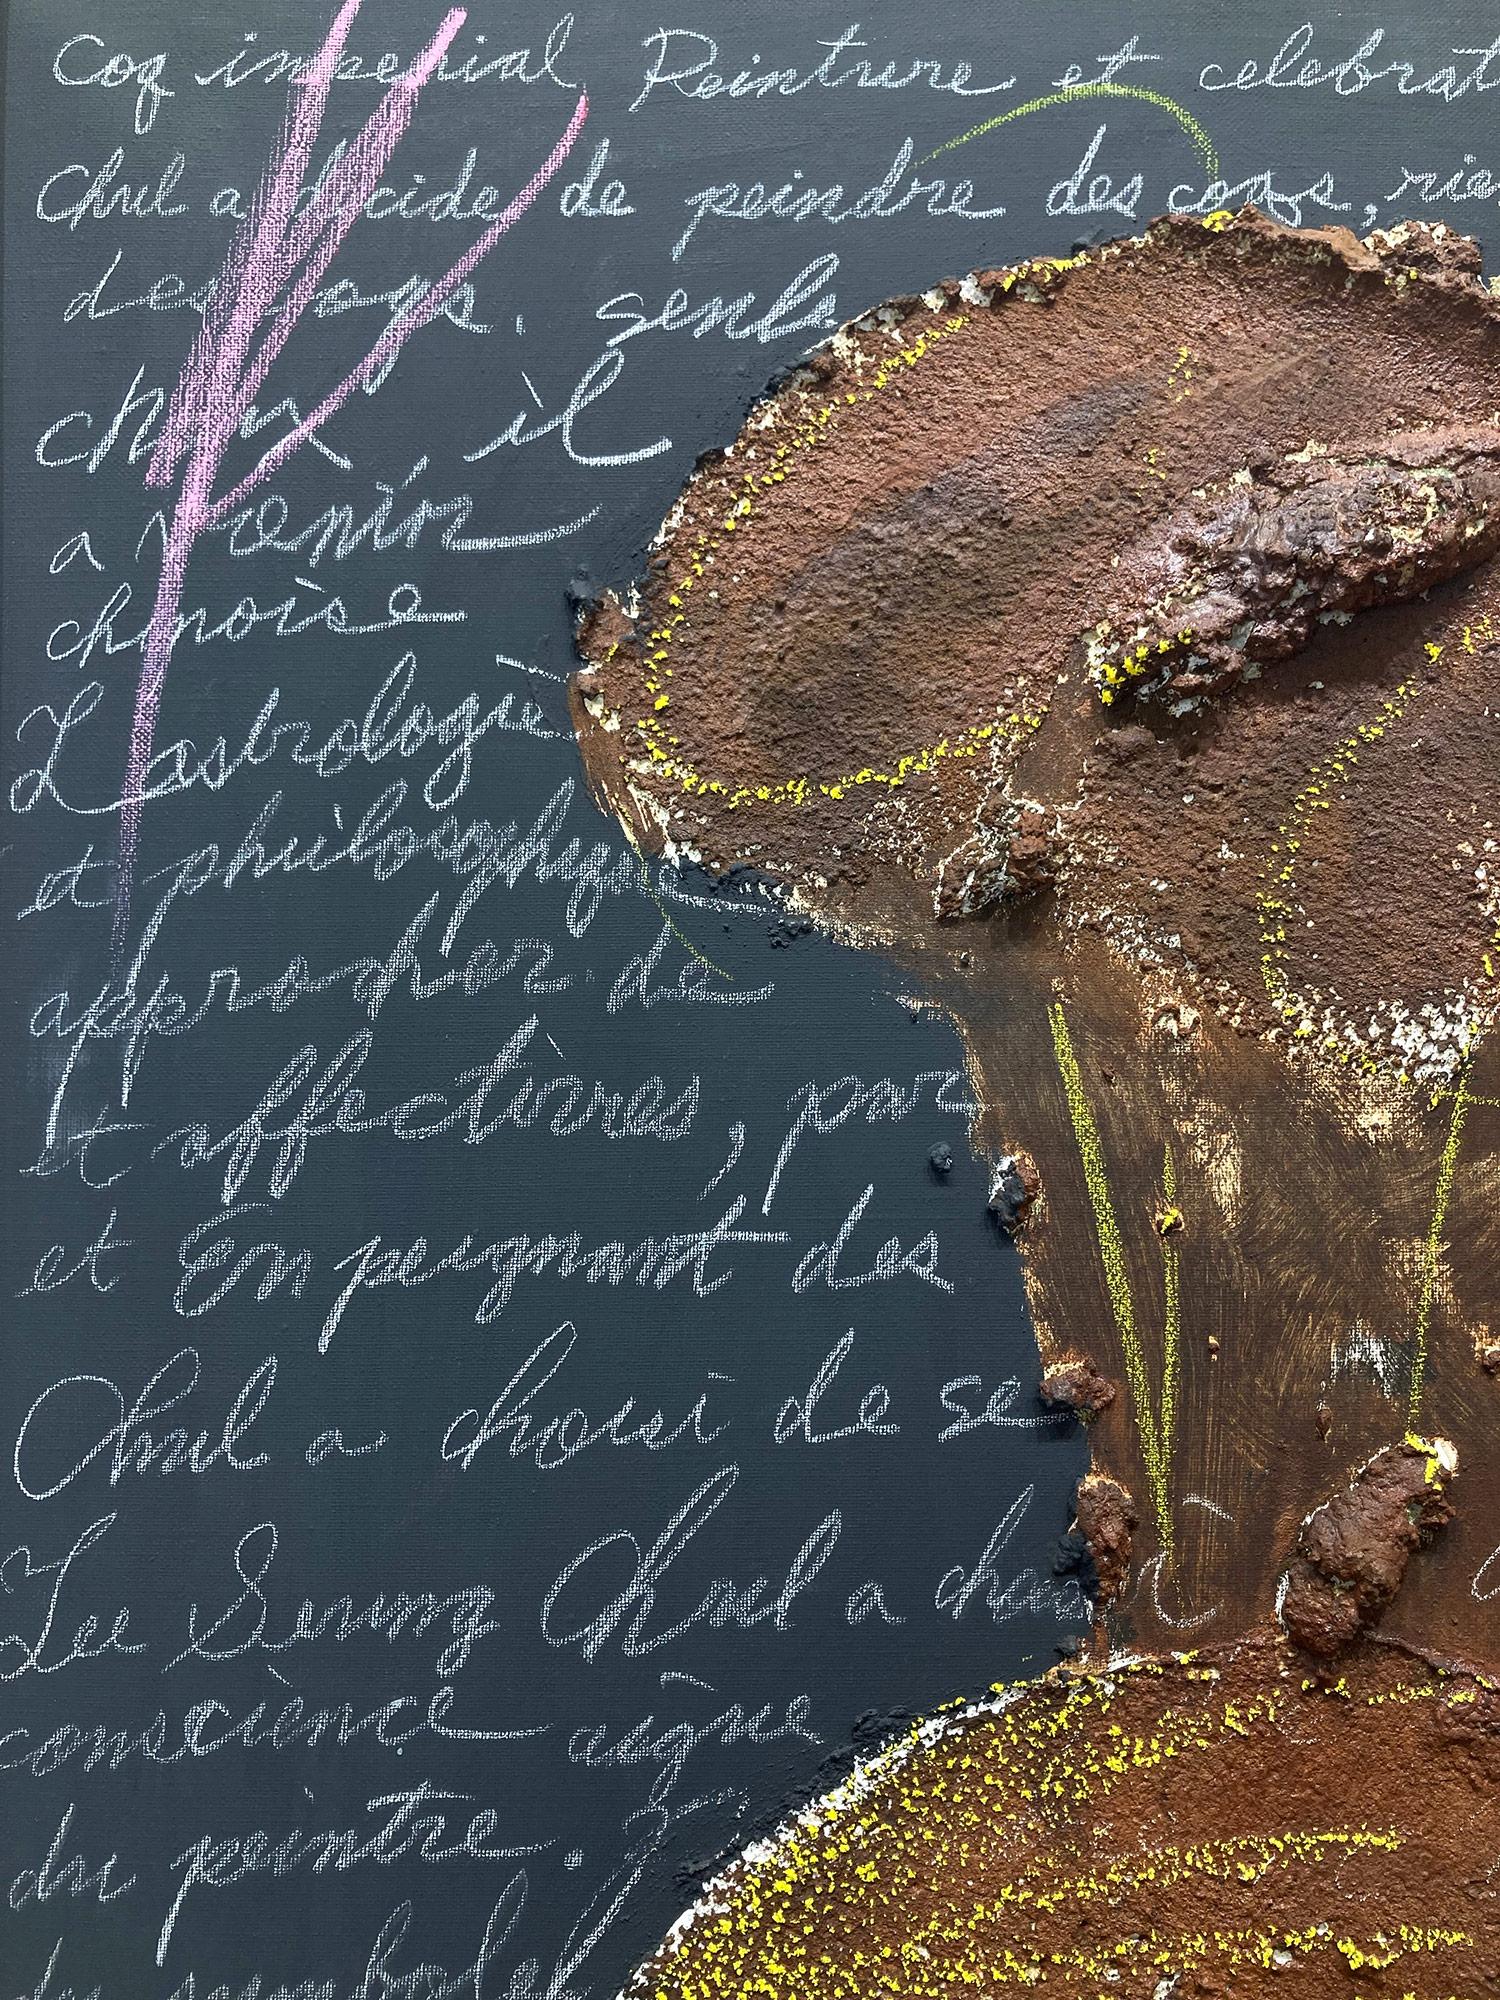 Coq imperial, Peinture et celebrat
Chul a decide de peindre des coqs, rien
des coqs. senle
choix, il
a venir
chinoise
L'astrologie
et philosophique
approcher de
et affectives, pour
et En peignant des
Chul a choisi de se
Lee Seung Chul a choisi
conscience aigue
du peintre.